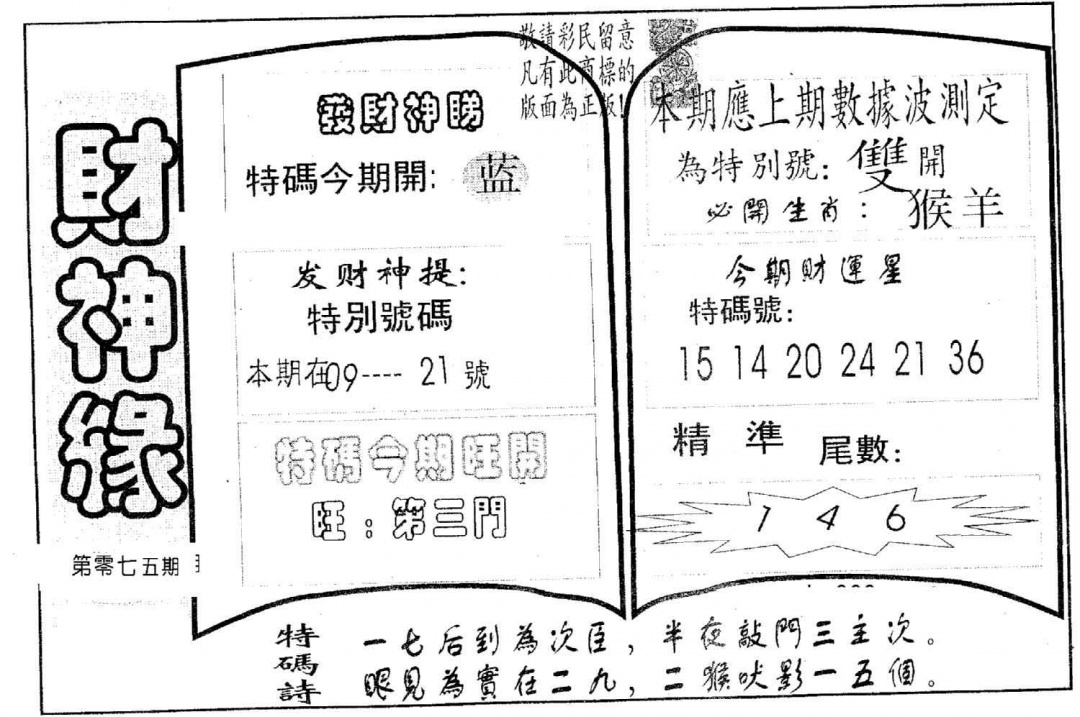 財神緣
第零七五期
敬請彩民留意
凡有此商標的
版面為正版!
發財神睇
特碼今期開: 蓝
发财神提:
特別號碼
本期在09---- 21 號
特碼今期旺開
旺:第三門
本期應上期數據波測定
為特別號: 雙開
必開生肖: 猴羊
今期財運星
特碼號:
15 14 20 24 21 36
精準 尾數:
1 4 6
特碼詩
一七后到為次臣,半夜敲門三主次。
眼見為實在二九,二猴吠影一五個。